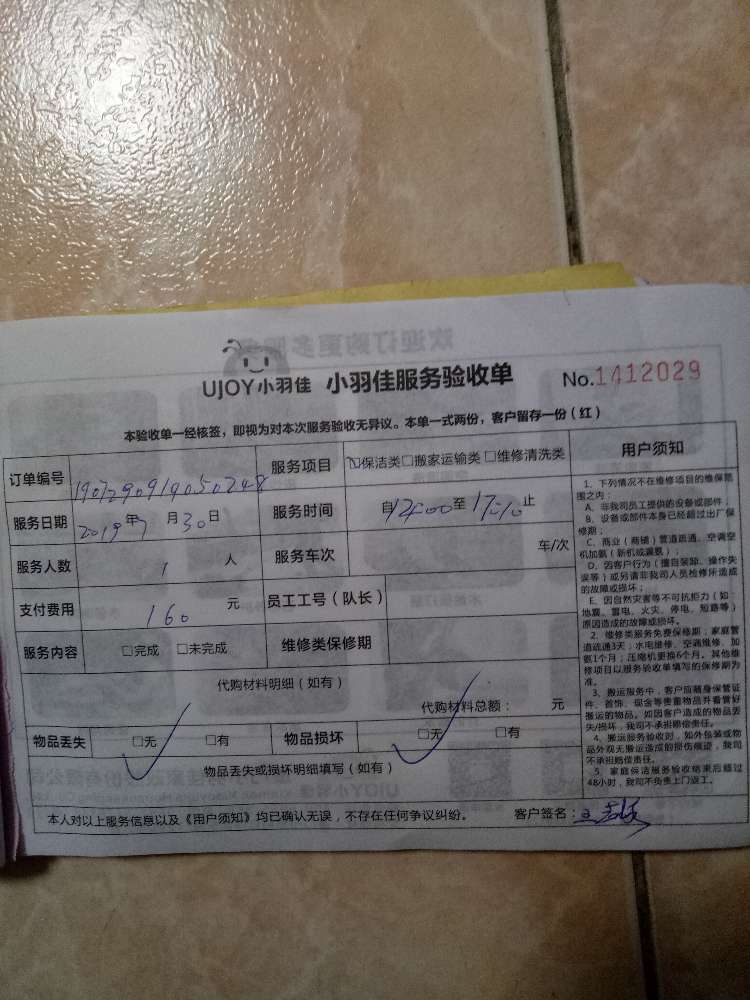 UJOY小羽佳 小羽佳服务验收单 No.1412029
本验收单一经核签，即视为对本次服务验收无异议。本单一式两份，客户留存一份（红）
订单编号 服务项目 ☑保洁类□搬家运输类□维修清洗类
服务日期 2019年7月30日 服务时间 自 至 止
服务人数 1 人 服务车次 车/次
支付费用 160 元 员工工号（队长）
服务内容 □完成 □未完成 维修类保修期
代购材料明细（如有）
代购材料总额： 元
物品丢失 □无 □有 物品损坏 □无 □有
物品丢失或损坏明细填写（如有）
本人对以上服务信息以及《用户须知》均已确认无误，不存在任何争议纠纷。 客户签名：
用户须知
1、下列情况不在维修项目的维保范
围之内：
A、非我司员工提供的设备或部件；
B、设备或部件本身已经超过出厂保
修期；
C、商业（商铺）管道疏通、空调空
机加氨（新机或漏氨）；
D、因客户行为（擅自装卸、操作失
误等）或另请非我司人员检修所造成
的故障或损坏；
E、因自然灾害等不可抗拒力（如：
地震、雷电、火灾、停电、短路等）
原因造成的故障或损坏。
2、维修类服务免费保修期：家庭管
道疏通3天；水电维修、空调维修、加
氨1个月；压缩机更换6个月。其他维
修项目以服务验收单填写的保修期为
准。
3、搬运服务中，客户应随身保管证
件、首饰、现金等贵重物品并看管好
搬运的物品。如因客户造成的物品丢
失/损坏，我司不承担赔偿责任。
4、搬运服务验收时，如外包装或物
品外观无搬运造成的损伤痕迹，我司
不承担赔偿责任。
5、家庭保洁服务验收结束后超过
48小时，我司不负责上门返工。
欢迎订购更多服
UJOY小羽佳